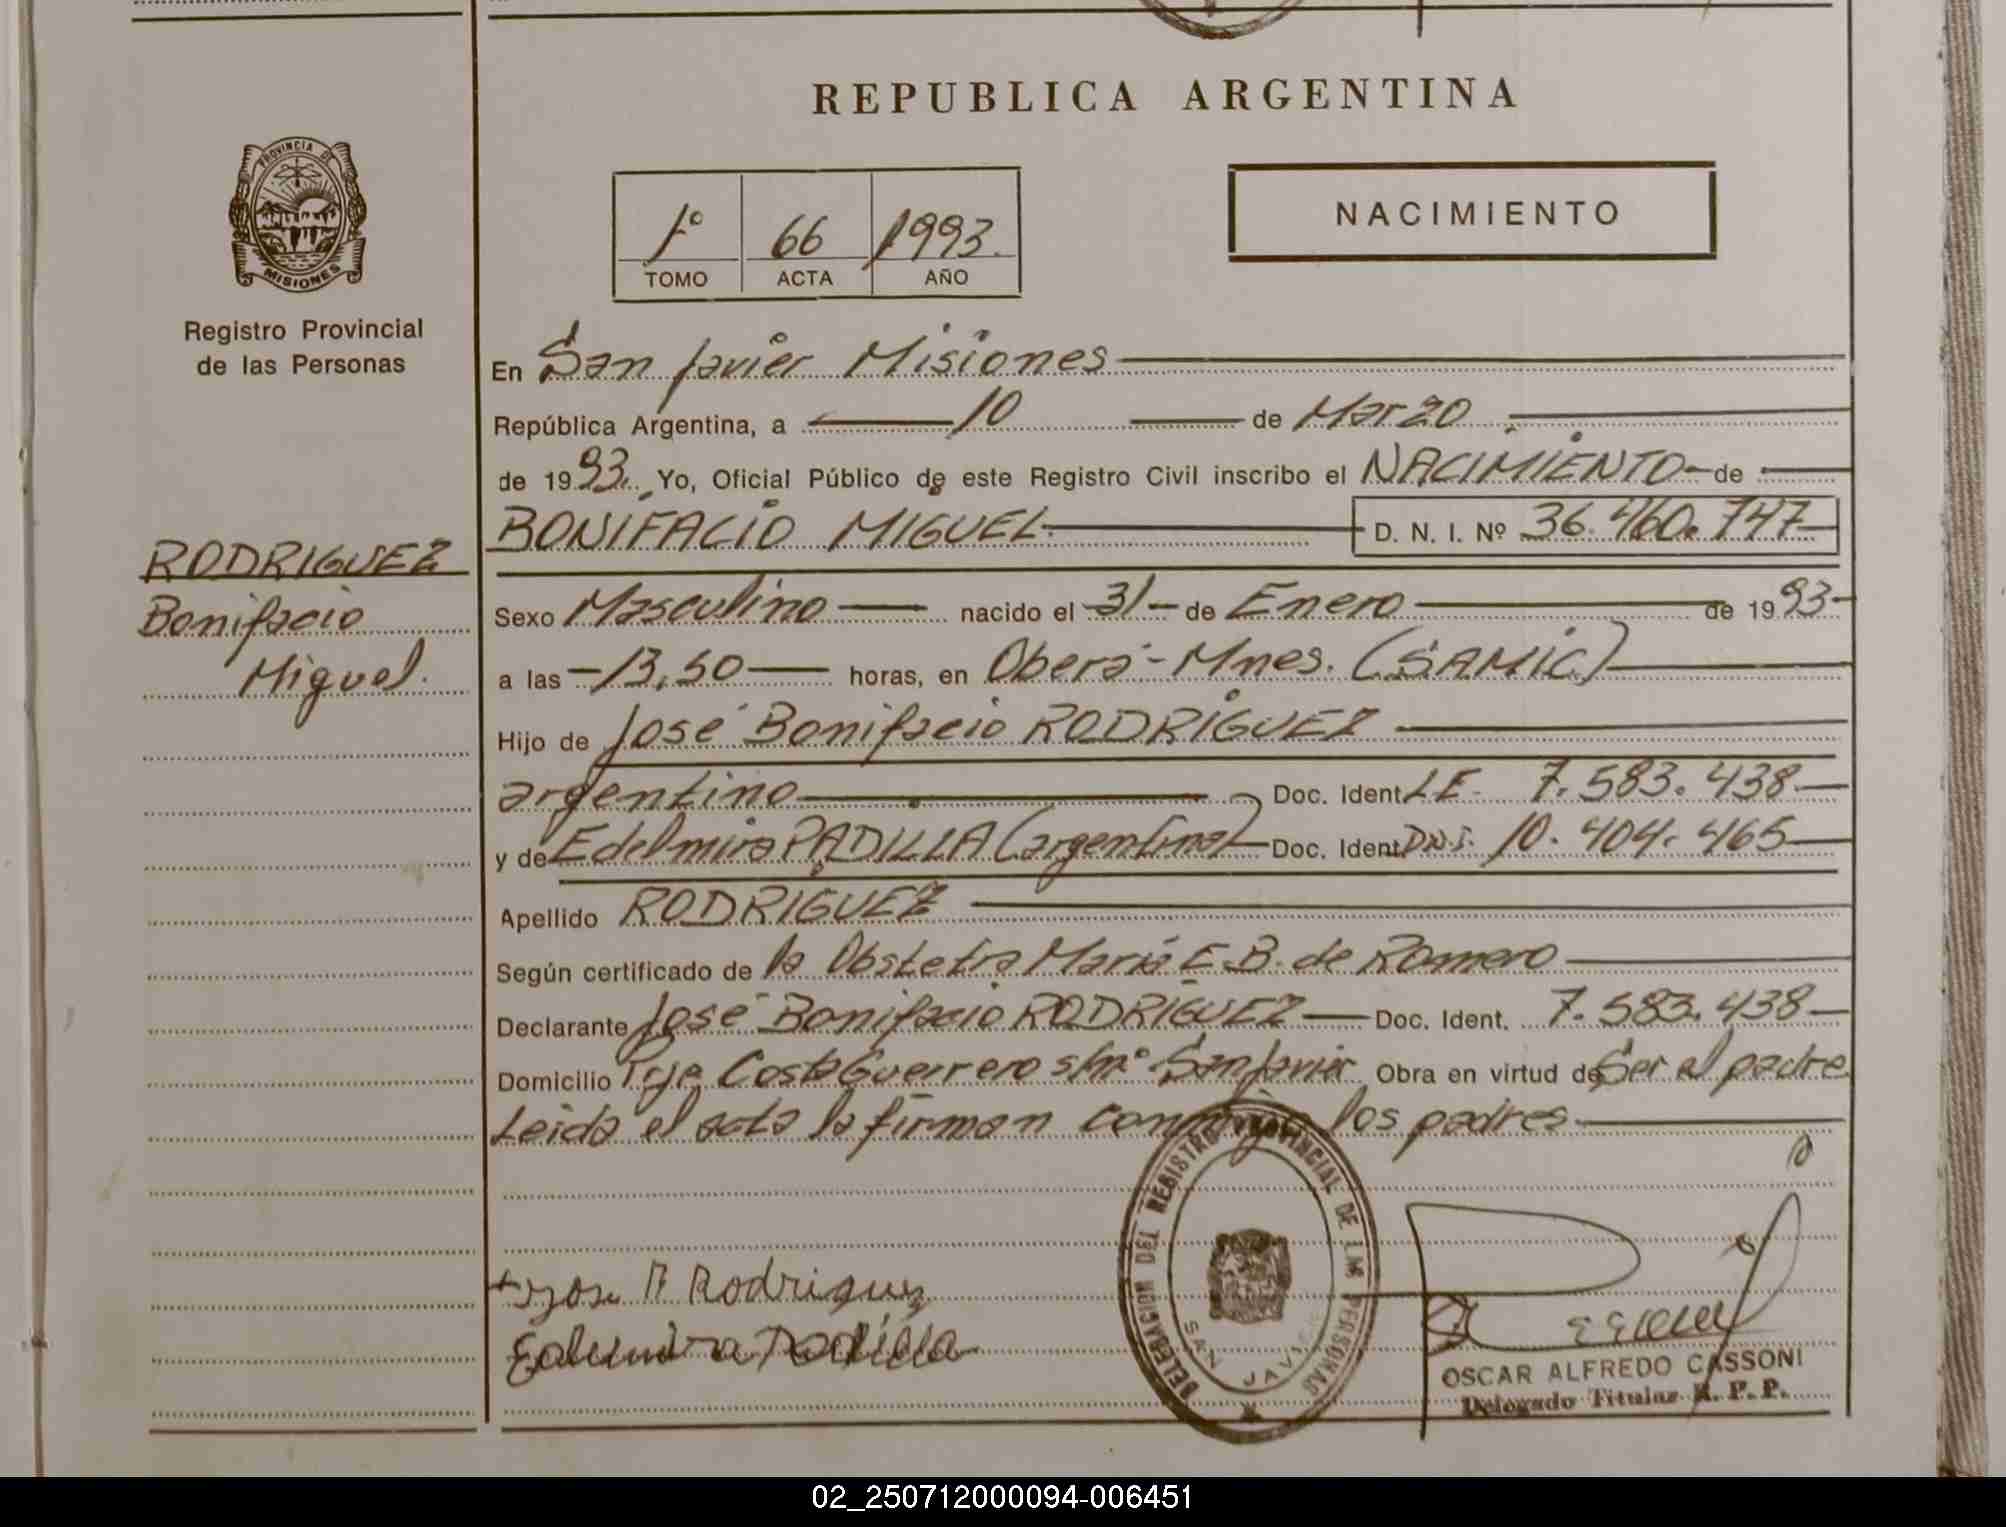 REPUBLICA ARGENTINA
PROVINCIA DE
MISIONES
Registro Provincial
de las Personas
1º 66 1993.
TOMO ACTA AÑO
NACIMIENTO
En San Javier Misiones
República Argentina, a 10 de Marzo
de 1993. Yo, Oficial Público de este Registro Civil inscribo el NACIMIENTO de
BONIFACIO MIGUEL D. N. I. Nº 36.460.747
RODRIGUEZ
Bonifacio
Miguel.
Sexo Masculino nacido el 31 de Enero de 1993
a las 13,50 horas, en Oberá - Mnes. (SAMIC)
Hijo de José Bonifacio RODRIGUEZ
argentino Doc. Ident LE 7.583.438
y de Edelmira PADILLA (argentina) Doc. Ident D.N.I. 10.404.465
Apellido RODRIGUEZ
Según certificado de la Obstetra María E. B. de Romero
Declarante José Bonifacio RODRIGUEZ Doc. Ident. 7.583.438
Domicilio Pje Costa Guerrero s/nº San Javier Obra en virtud de Ser el padre
Leida el acta la firman conmigo los padres
DELEGACION DEL REGISTRO PROVINCIAL DE LAS PERSONAS
SAN JAVIER
Rodriguez
Edelmira Padilla
OSCAR ALFREDO CASSONI
Delegado Titular R. P. P.
02_250712000094-006451